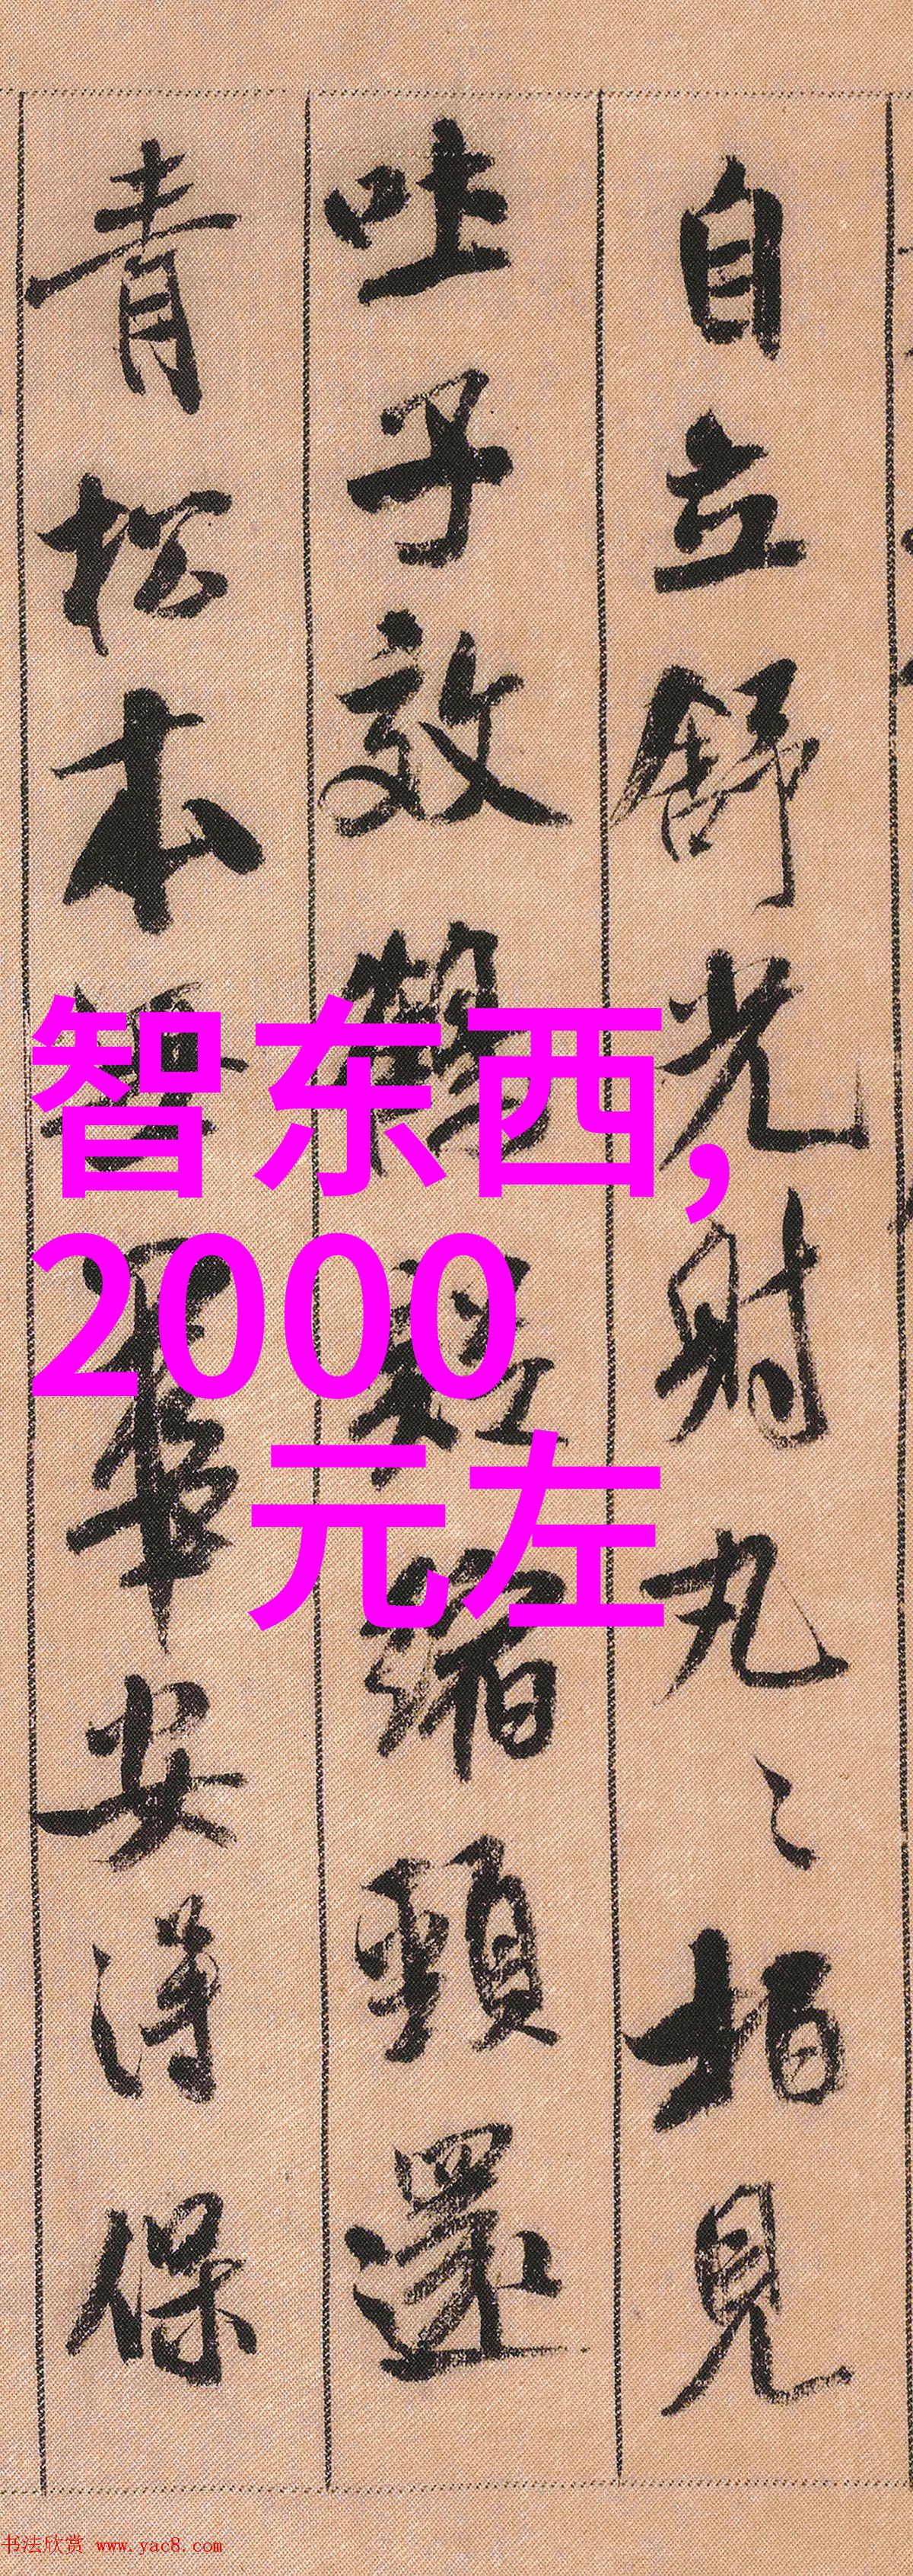 自立舒光射丸〻柏見
吐子效鶴疑縮頸還
青松本無華安得保
智东西,
2000
元左
书法欣赏 www.yac8.com